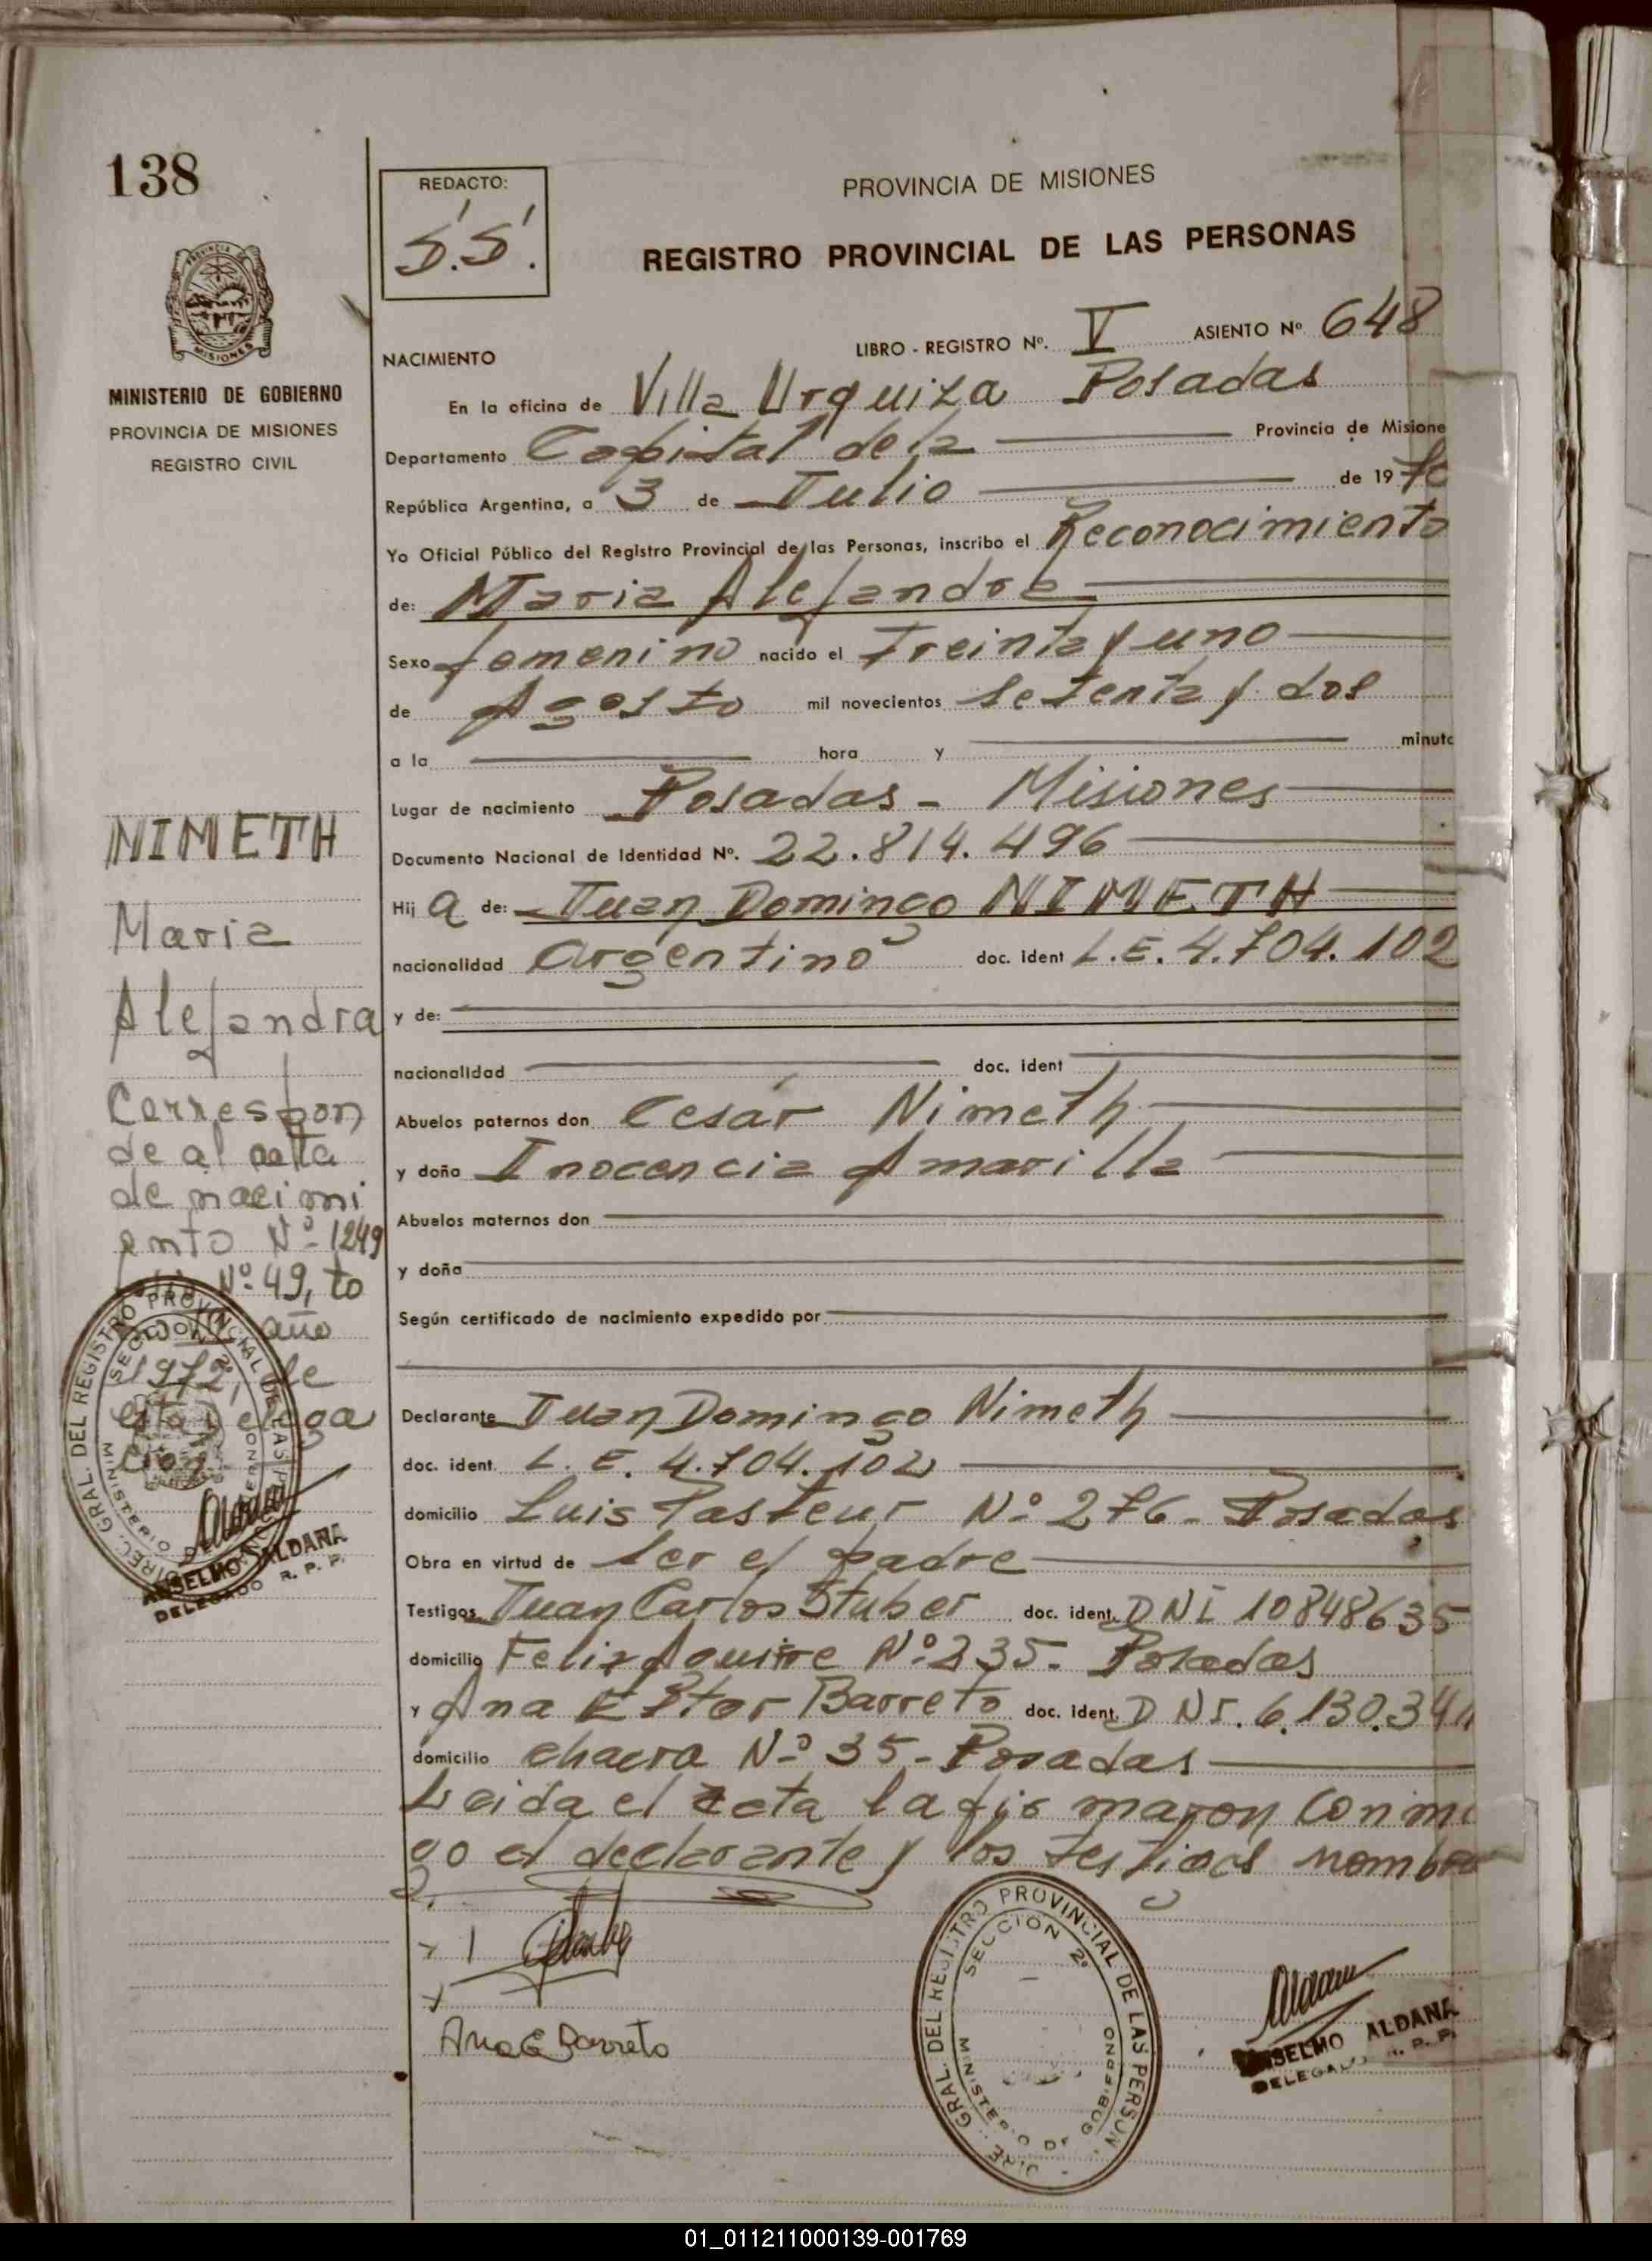 138
REDACTO:
S.S.
PROVINCIA DE MISIONES
REGISTRO PROVINCIAL DE LAS PERSONAS
PROVINCIA
MISIONES
MINISTERIO DE GOBIERNO
PROVINCIA DE MISIONES
REGISTRO CIVIL
LIBRO - REGISTRO Nº. V ASIENTO Nº 648
NACIMIENTO
En la oficina de Villa Urquiza Posadas
Departamento Capital de la Provincia de Misione
República Argentina, a 3 de Julio de 19
Yo Oficial Público del Registro Provincial de las Personas, inscribo el Reconocimiento
de: Maria Alejandra
Sexo femenino nacido el treinta y uno
de Agosto mil novecientos setenta y dos
a la hora y minuto
Lugar de nacimiento Posadas - Misiones
Documento Nacional de Identidad Nº. 22.814.496
Hij a de: Juan Domingo NIMETH
nacionalidad argentino doc. ident L.E. 4.704.102
y de:
nacionalidad doc. ident
Abuelos paternos don Cesár Nimeth
y doña Inocencia Amarilla
Abuelos maternos don
y doña
Según certificado de nacimiento expedido por
Declarante Juan Domingo Nimeth
doc. ident. L.E. 4.704.102
domicilio Luis Pasteur Nº 276 - Posadas
Obra en virtud de ser el padre
Testigos Juan Carlos Stuber doc. ident. DNI 10848635
domicilio Felix Aguirre Nº 235 - Posadas
y Ana Ester Barreto doc. ident. DNI. 6.130.34
domicilio chacra Nº 35 - Posadas
Leida el acta la firmaron conmi
go el declarante y los testigos nombra
NIMETH
Maria
Alejandra
Correspon
de al acta
de nacimi
ento Nº 1249
Nº 49, to
año
1972, de
esta Delega
cion.
DIREC. GRAL. DEL REGISTRO PROVINCIAL DE LAS PERSON
SECCION 2º
MINISTERIO DE GOBIERNO
ANSELMO ALDANA
DELEGADO R. P. P.
Ana E Barreto
DIREC. GRAL. DEL REGISTRO PROVINCIAL DE LAS PERSON
SECCION 2º
MINISTERIO DE GOBIERNO
ANSELMO ALDANA
DELEGADO R. P. P.
01_011211000139-001769